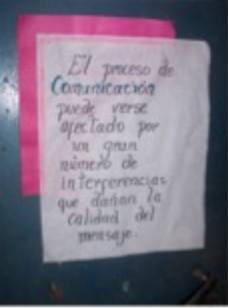 El proceso de
Comunicación
puede verse
afectado por
un gran
número de
interferencias
que dañan la
calidad del
mensaje.